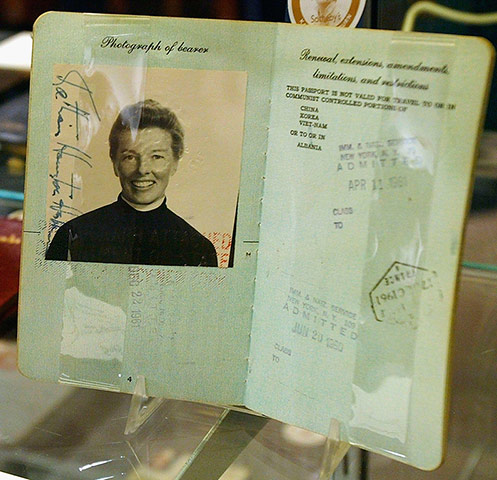 Sotheby's
Photograph of bearer
Katharine Houghton Hepburn
4
Renewal, extensions, amendments,
limitations, and restrictions
THIS PASSPORT IS NOT VALID FOR TRAVEL TO OR IN
COMMUNIST CONTROLLED PORTIONS OF
CHINA
KOREA
VIET-NAM
OR TO OR IN
ALBANIA
NEW YORK, N. Y.
ADMITTED
APR 11 1961
CLASS
TO
NEW YORK, N. Y.
ADMITTED
JUN 20 1960
CLASS
TO